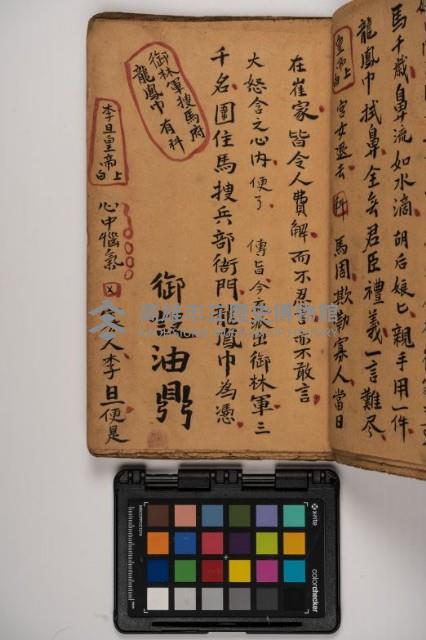 馬千歲鼻流如水滴 胡后娘匕親手用一件
龍鳳巾拭鼻全無君臣禮義一言難尽
皇帝上白 宮女退去 馬周欺 寡人當日
在崔家皆令人費解而不忍言而不敢言
大怒含之心內便了 傳旨今夜派出御林軍三
千名圍住馬搜兵部衙門 鳳巾為憑
御林軍搜馬府
龍鳳巾 有科
御設油鼎
李旦皇帝上白 心中惱氣 人李旦便是
高雄市立歷史博物館
x-rite
colorchecker